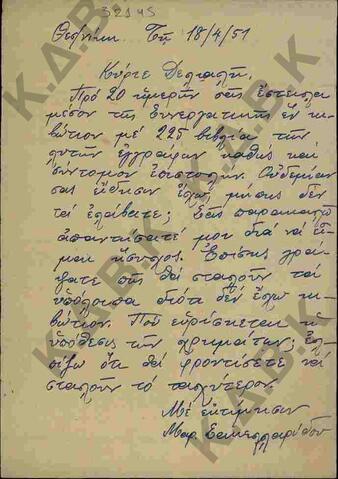 32145
Θεσ/νίκη Τῇ 18/4/51
Κύριε Δελιαλῆ,
Πρό 20 ἡμερῶν σᾶς ἔστειλα
μέσον τῆς Συνεργατικῆς ἕν κι-
βώτιον μέ 225 βιβλία τῶν
λυτῶν ἐγγράφων καθώς καί
σύντομον ἐπιστολήν. Οὐδεμίαν
σας εἴδησιν ἔχω, μήπως δέν
τά ἐλάβατε; Σᾶς παρακαλῶ
ἀπαντήσατέ μου διά νά εἶ-
μαι ἥσυχος. Ἐπίσης γρά-
ψατε πῶς θά σταλοῦν τά
ὑπόλοιπα διότι δέν ἔχω κι-
βώτιον. Ποῦ εὑρίσκεται ἡ
ὑπόθεσις τῶν χρημάτων; Ἐλ-
πίζω ὅτι θά φροντίσετε νά
σταλοῦν τό ταχύτερον.
Μέ ἐκτίμησιν
Μαρ.
Κ.Δ.Β.Κ